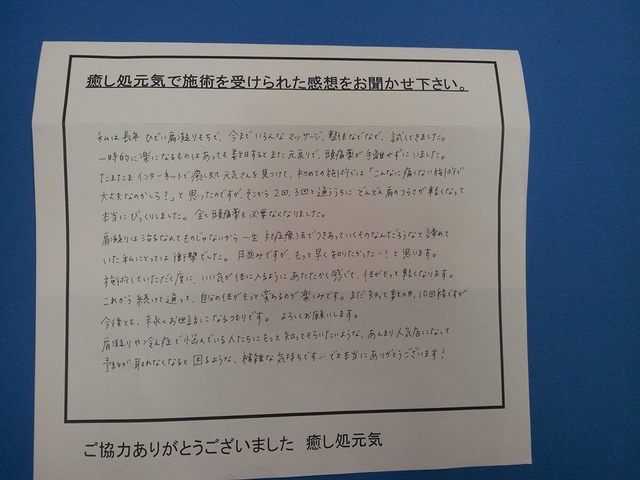 癒し処元気で施術を受けられた感想をお聞かせ下さい。
私は長年 ひどい肩凝りもちで、今までいろんなマッサージ、整体などなど、試してきました。
一時的に楽になるものはあっても数日するとまた元戻りで、頭痛薬が手離せずにいました。
たまたまインターネットで癒し処 元気さんを見つけて、初めての施術では「こんなに痛くない施術で
大丈夫なのかしら?」と思ったのですが、そこから2回、3回と通ううちに どんどん肩のつらさが軽くなって
本当にびっくりしました。全く頭痛薬も必要なくなりました。
肩凝りは治るなんてものじゃないから一生 対症療法でつきあっていくものなんだろうなと諦めて
いた私にとっては衝撃でした。月並みですが、もっと早く知りたかったー!と思います。
施術していただく度に、いい気が体に入るようにあたたかく感じて、体がもって軽くなります。
これから続けて通って、自分の体がもっと変わるのが楽しみです。まだ知って数か月、10回程ですが
今後とも、末永くお世話になるつもりです。よろしくお願いします。
肩凝りや冷え症で悩んでいる人たちにもっと知ってもらいたいような、あんまり人気店になって
予約が取れなくなると困るような、複雑な気持ちです…でも本当にありがとうございます!
ご協力ありがとうございました 癒し処元気